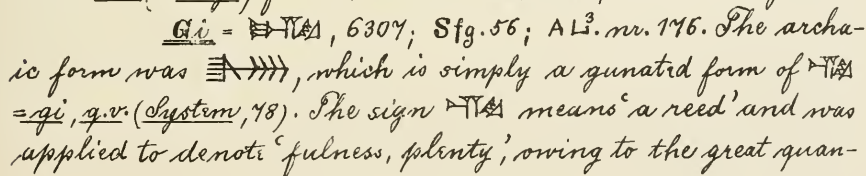 Gi = 𒄄, 6307; Sfg. 56; AL³. nr. 176. The archa-
ic form was , which is simply a gunated form of 𒄀
= gi, q.v. (System, 78). The sign 𒄀 means ‘a reed’ and was
applied to denote ‘fulness, plenty’, owing to the great quan-